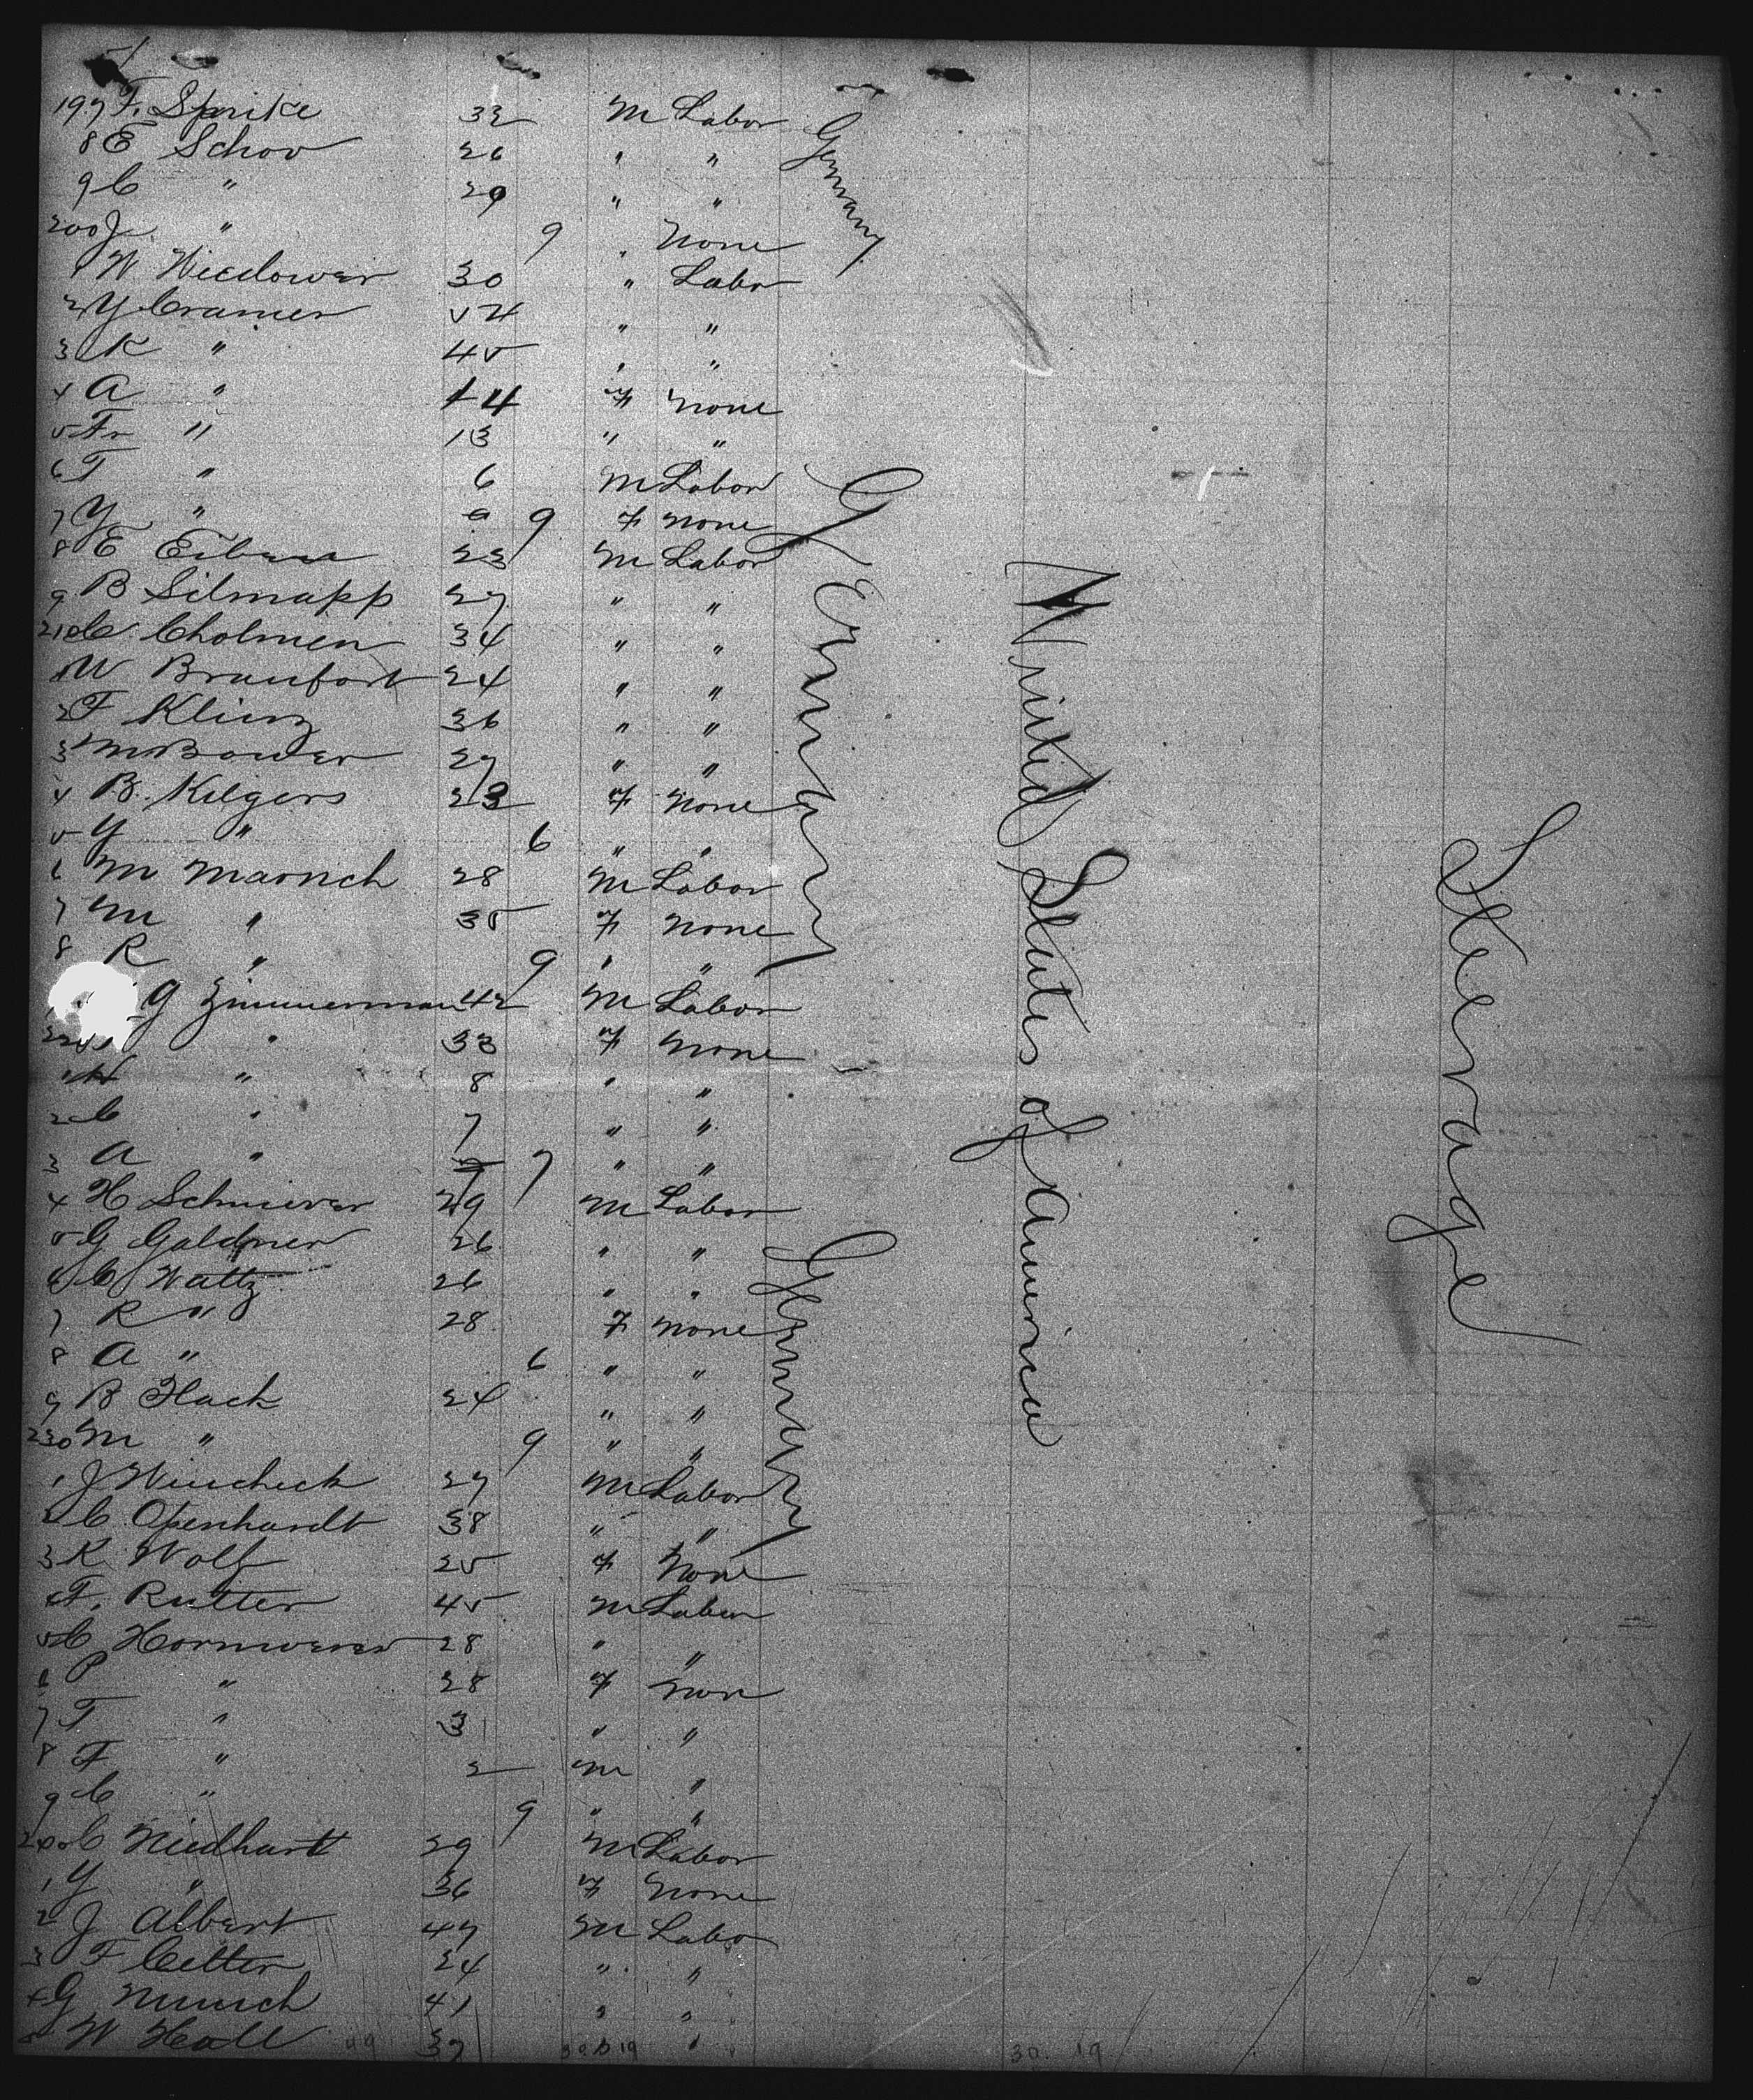 197 F. Sprike 32 M Labor
8 E Schov 26 " "
9 C " 29 " "
200 J " 9 " None
1 W Wiedower 30 " Labor
2 Y Cramer 54 " "
3 K " 45 " "
4 A " 14 F None
5 Fr " 13 " "
6 T " 6 M Labor
7 Y " 9 F None
8 E 23 M Labor
9 B Silmapp 27 " "
210 C Cholmen 34 " "
1 W Braufort 24 " "
2 F Kling 36 " "
3 M Bower 27 " "
4 B. Kilgers 23 F None
5 Y " 6 " "
6 M Marnich 28 M Labor
7 M " 35 F None
8 R " 9 " "
G Zimmerman 42 M Labor
" 33 F None
1 H " 8 " "
2 C " 7 " "
3 A " 7 " "
4 H Schniever 29 M Labor
5 G Galdner 26 " "
6 C Waltz 26 " "
7 R " 28 F None
8 A " 6 " "
9 B Flack 24 " "
230 M " 9 " "
1 J Wincheck 27 M Labor
2 C. Openhardt 38 " "
3 K Wolf 25 F None
4 F. Rutter 45 M Labor
5 C Hornwerer 28 " "
6 P " 28 F Non
7 T " 31 " "
8 F " 2 M "
9 C " 9 " "
240 C Niedhart 29 M Labor
1 Y " 36 F None
2 J Albert 47 M Labo
3 F Cetter 24 " "
4 G Munich 41 " "
5 W Hall 37 "
Germany
Germany
Germany
United States of America
Steerage